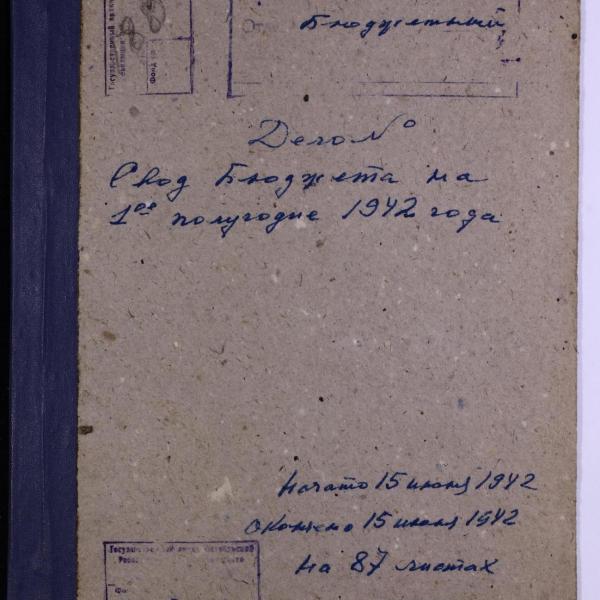 Государственный архив
Фонд №
Бюджетный
Дело №
Свод Бюджета на
1ое полугодие 1942 года
Начато 15 июня 1942
Окончено 15 июня 1942
на 87 листах
Государственный архив Октябрьской